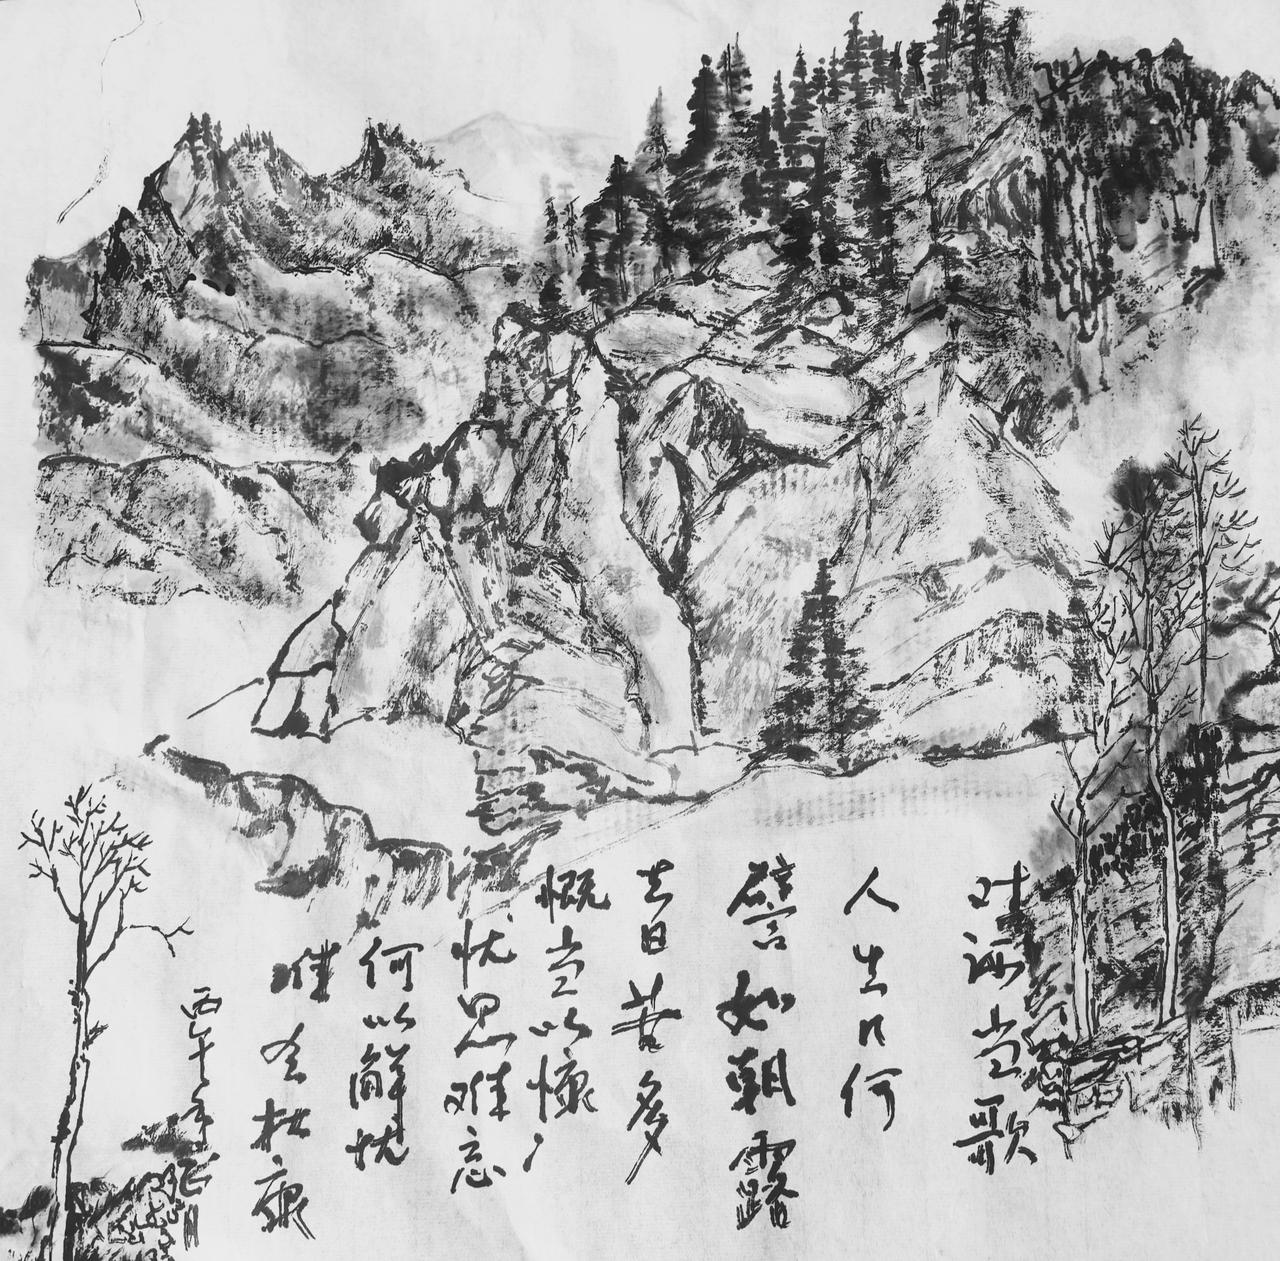 对酒当歌
人生几何
譬如朝露
去日苦多
慨当以慷
忧思难忘
何以解忧
唯有杜康
丙午年正月